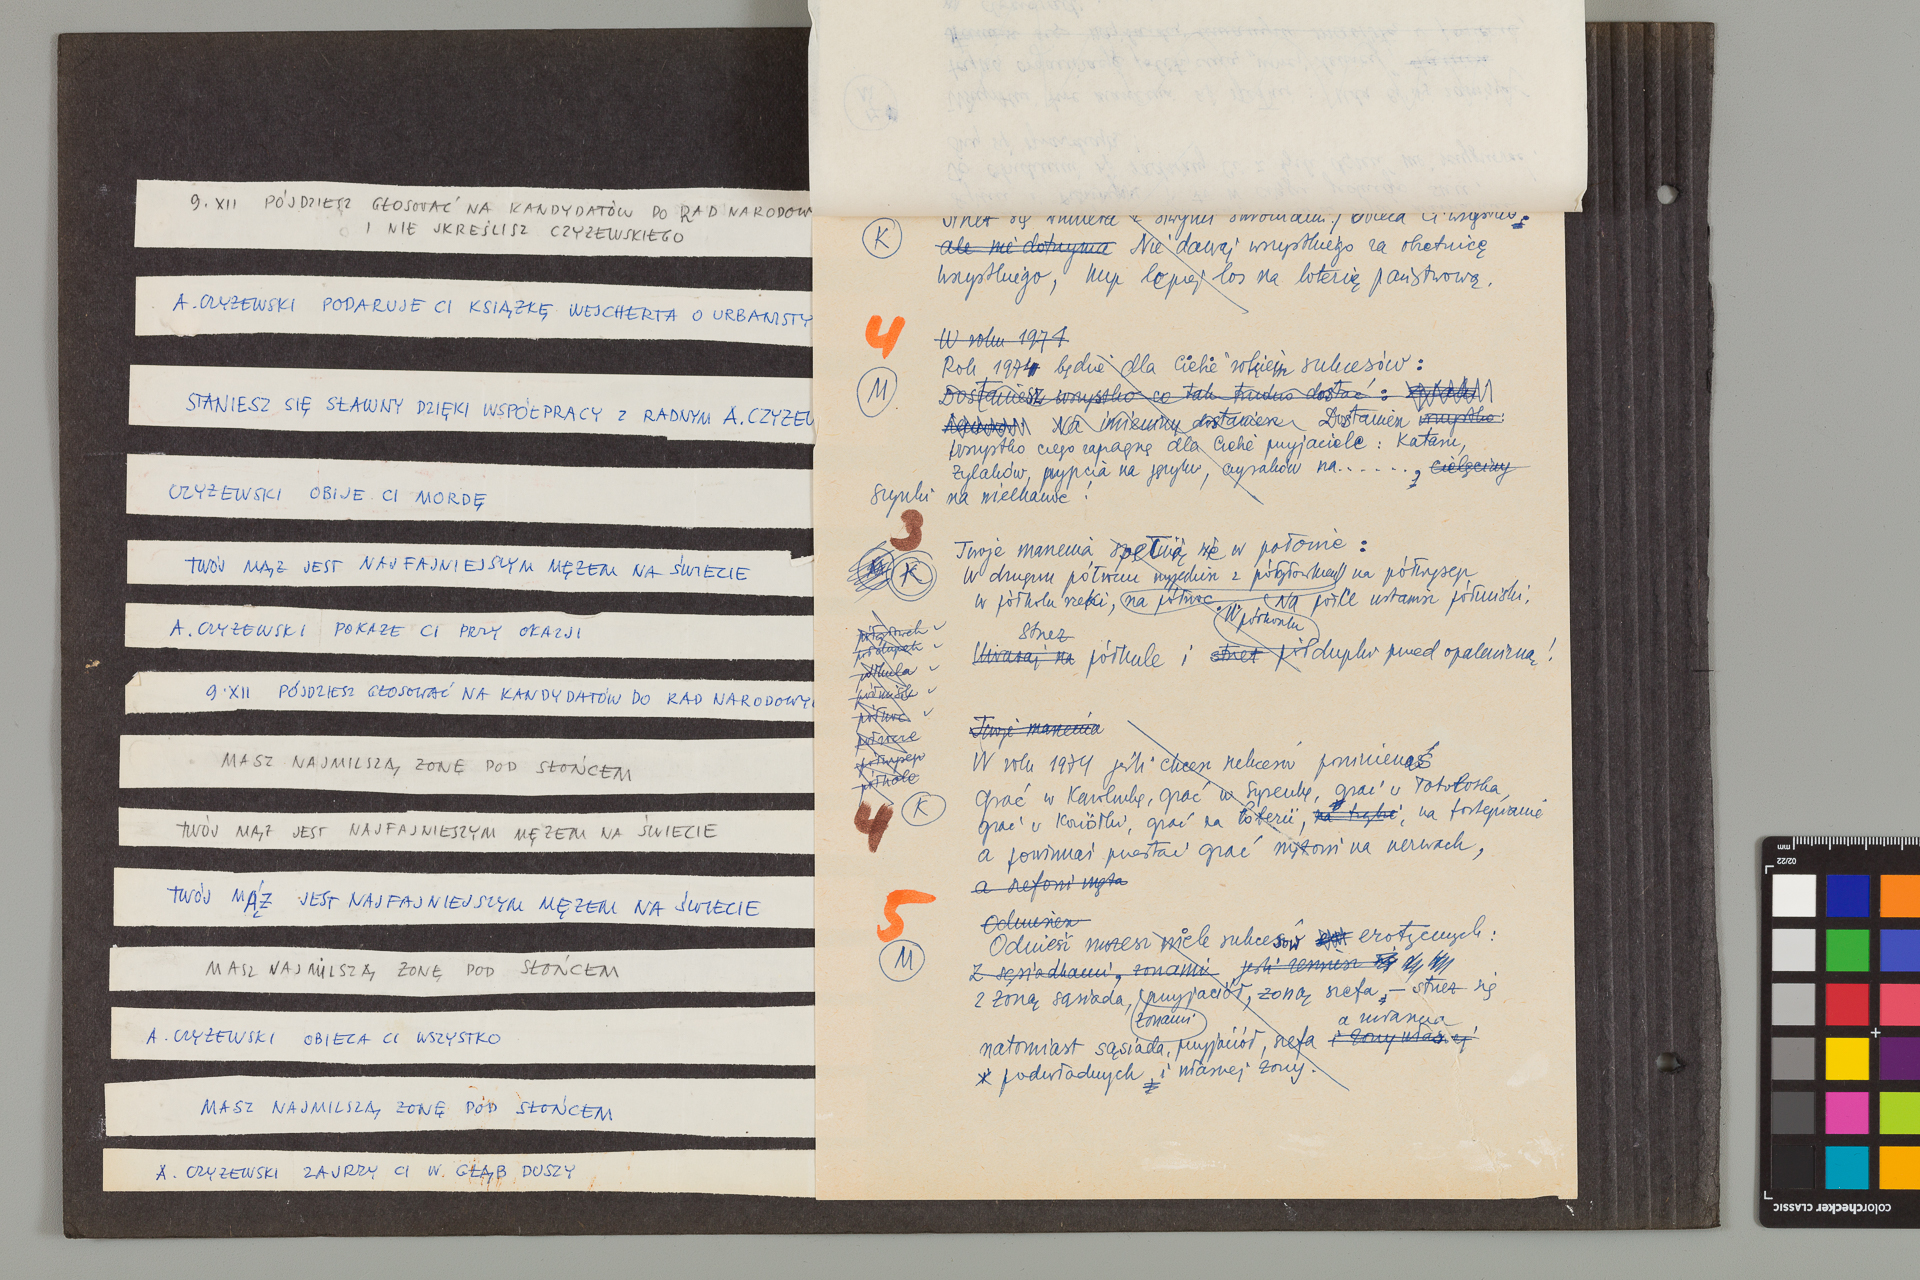 9. XII PÓJDZIESZ GŁOSOWAĆ NA KANDYDATÓW DO RAD NARODOW
I NIE SKREŚLISZ CZYŻEWSKIEGO
A. CZYŻEWSKI PODARUJE CI KSIĄŻKĘ WEJCHERTA O URBANISTY
STANIESZ SIĘ SŁAWNY DZIĘKI WSPÓŁPRACY Z RADNYM A. CZYŻEW
CZYŻEWSKI OBIJE CI MORDĘ
TWÓJ MĄŻ JEST NAJFAJNIEJSZYM MĘŻEM NA ŚWIECIE
A. CZYŻEWSKI POKAŻE CI PRZY OKAZJI
9. XII PÓJDZIESZ GŁOSOWAĆ NA KANDYDATÓW DO RAD NARODOWY
MASZ NAJMILSZĄ ŻONĘ POD SŁOŃCEM
TWÓJ MĄŻ JEST NAJFAJNIESZYM MĘŻEM NA ŚWIECIE
TWÓJ MĄŻ JEST NAJFAJNIEJSZYM MĘŻEM NA ŚWIECIE
MASZ NAJMILSZĄ ŻONĘ POD SŁOŃCEM
A. CZYŻEWSKI OBIECA CI WSZYSTKO
MASZ NAJMILSZĄ ŻONĘ POD SŁOŃCEM
A. CZYŻEWSKI ZAJRZY CI W GŁĄB DUSZY
K
ale nie dotrzyma Nie dawaj wszystkiego za obietnicę
wszystkiego, kup lepiej los na loterię państwową.
4
W roku 1974
Rok 1974 będzie dla Ciebie rokiem sukcesów:
M
Dostaniesz wszystko co tak trudno dostać:
Na imieniny dostaniesz Dostaniesz wszystko:
wszystko czego zapragną dla Ciebie przyjaciele: kataru,
żylaków, pryszcza na języku, czyraków na......, cielęciny
szynki na mielkanoc!
3
Twoje marzenia spełnią się w połowie:
K
W drugim półroczu wyjedziesz z na półwysep
w półkolu rzeki, na północ Na półce ustawisz półmiski.
W półkonku
strzeż
Uważaj na półkule i strzeż półdupków przed opalenizną!
półdupek
półkula
półmisek
północ
półrocze
półwysep
półkole
Twoje marzenia
W roku 1974 jeśli chcesz sukcesów powinieneś
K
grać w Karolinkę, grać w Syrenkę, grać w Totolotka,
4
grać w Koziołki, grać na loterii, na trąbie, na fortepianie
a powinnaś przestać grać mężowi na nerwach,
a szefowi męża
5
Odniesiesz
Odnieść możesz wiele sukcesów erotycznych:
M
z sąsiadkami, żonami jeśli
z żoną sąsiada, przyjaciół, żoną szefa, – strzeż się
żonami
a zwłaszcza
natomiast sąsiada, przyjaciół, szefa i żony własnej
podwładnych i własnej żony.
mm
02/22
colorchecker CLASSIC